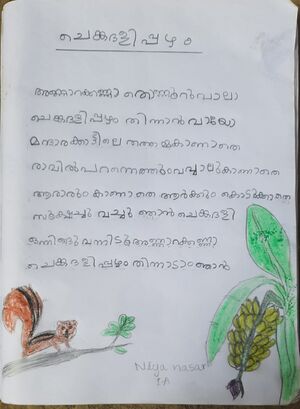 ചെങ്കദളിപ്പഴം
അണ്ണാറക്കണ്ണാ തൊണ്ണൂറൻവാലാ
ചെങ്കദളിപ്പഴം തിന്നാൻ വായോ
മന്ദാരക്കാട്ടിലെ തത്തമ്മകാണാതെ
രാവിൽപറന്നെത്തും വവ്വാലുകാണാതെ
ആരാരും കാണാതെ ആർക്കും കൊടുക്കാതെ
സൂക്ഷിച്ചു വച്ചു ഞാൻ ചെങ്കദളി
വന്നിടൂ അണ്ണാറക്കണ്ണാ
ചെങ്കദളിപ്പഴം തിന്നാടാം ഞാൻ
Niya nasar
I-A